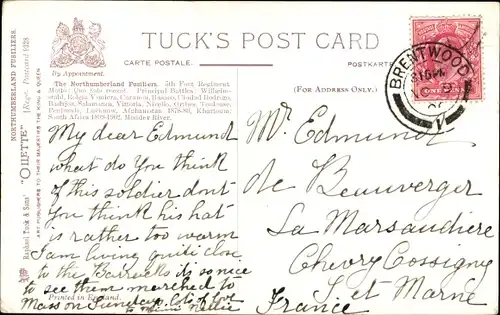 TUCK'S POST CARD
CARTE POSTALE.
POSTKARTE
By Appointment.
(For Address Only.)
The Northumberland Fusiliers. 5th Foot Regiment
Motto Quo fata vocant. Principal Battles. Wilhelms-
stahl, Roleia, Vimiera, Corunna, Busaco, Ciudad Rodrigo,
Badajoz, Salamanca, Vittoria, Nivelle, Orthes, Toulouse,
Lucknow, Afghanistan, 1878-80, Khartoum,
South Africa 1899-1902. Modder River.
My dear Edmund
what do you think
of this soldier dont
you think his hat
is rather too warm
I am living quite close
to the Barracks its so nice
to see them marched to
Mass on Sunday. lots of love
Nellie
Printed in England.
Raphael Tuck & Sons' "OILETTE" [Regd.] Postcard 9128
NORTHUMBERLAND FUSILIERS.
ART PUBLISHERS TO THEIR MAJESTIES THE KING & QUEEN
BRENTWOOD
ONE PENNY
Mr Edmund
de Beauverger
La Marsaudiere
Chevry Cossigny
S. et Marne
France